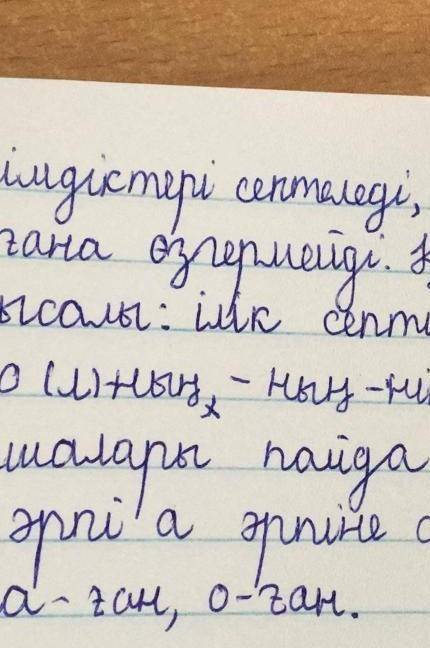 імдіктері септеледі,
ғана өзгермейді.
ысалы: ілік септі
о (л)+ның, - ның -ні
шалары пайда
әрпі а әрпіне
а- ған, о-ған.